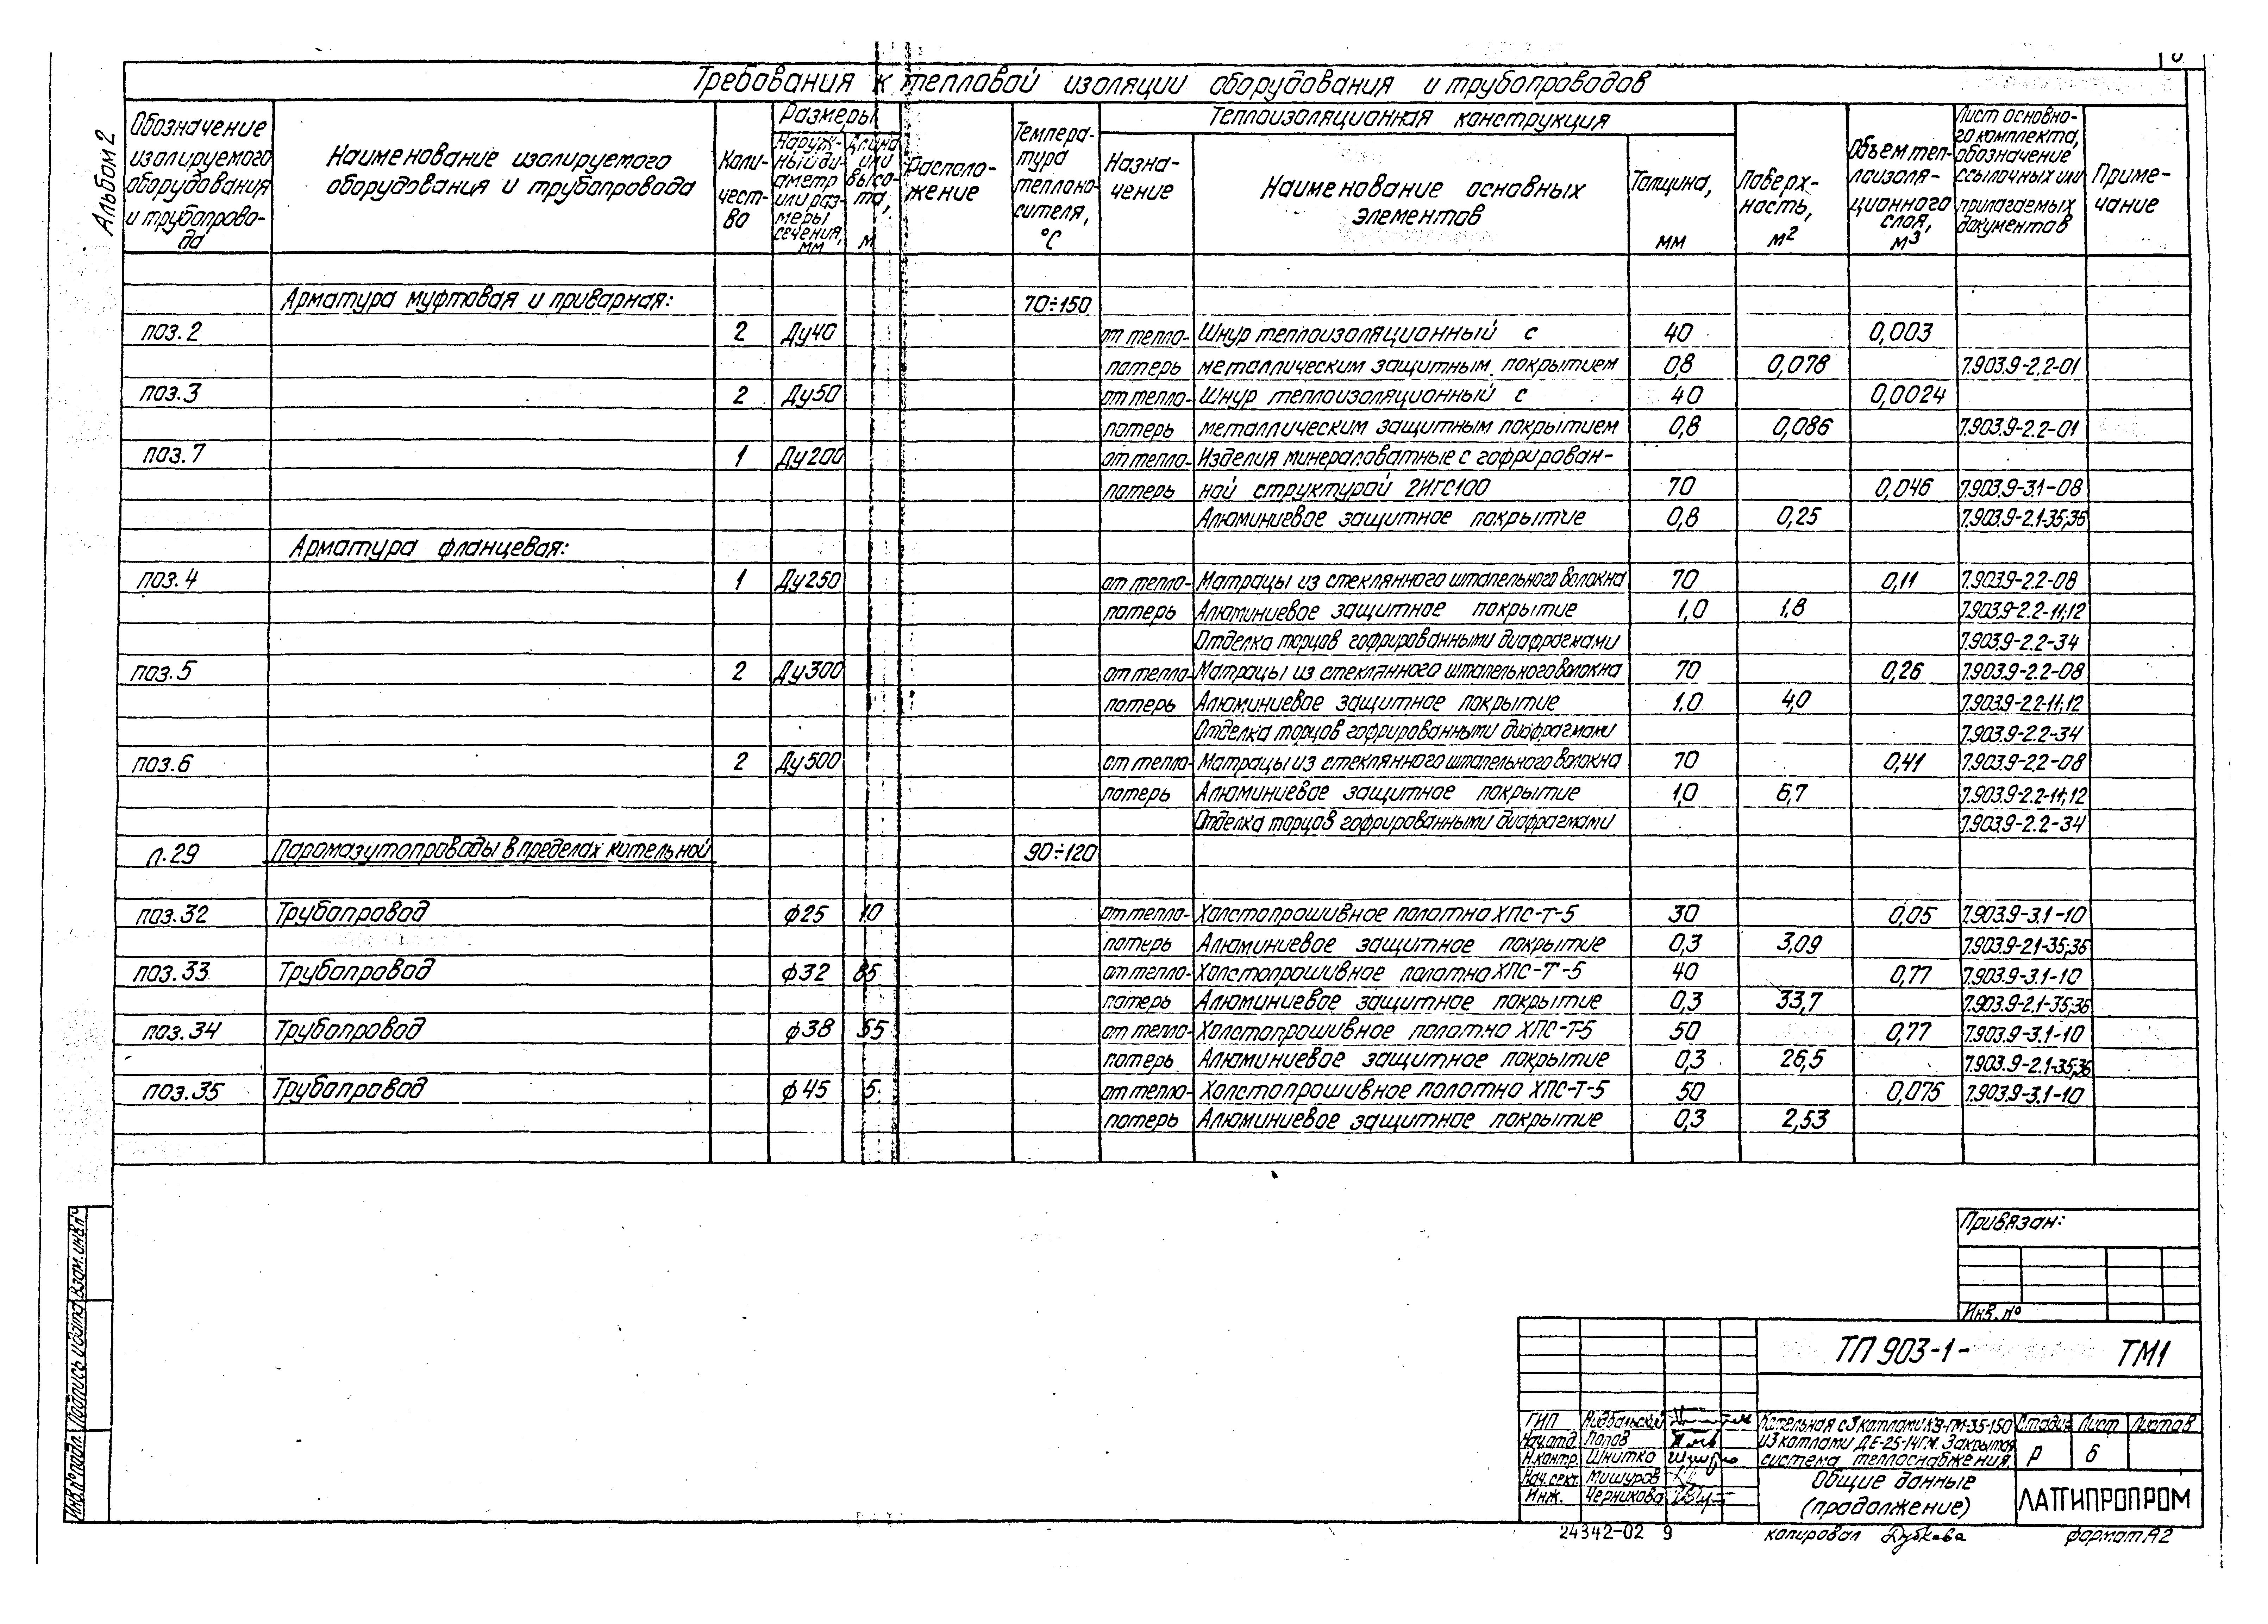 Альбом 2
Требования к тепловой изоляции оборудования и трубопроводов
Обозначение изолируемого оборудования и трубопровода
Наименование изолируемого оборудования и трубопровода
Коли-чест-во
Размеры
Наруж-ный ди-аметр или раз-меры сечения, мм
Длина или высо-та, м
Располо-жение
Темпера-тура теплоно-сителя, °С
Теплоизоляционная конструкция
Назна-чение
Наименование основных элементов
Толщина, мм
Поверх-ность, м2
Объем теп-лоизоля-ционного слоя, м3
Лист основно-го комплекта, обозначение ссылочных или прилагаемых документов
Приме-чание
Арматура муфтовая и приварная: 70÷150
поз.2 2 Ду40 от тепло- Шнур теплоизоляционный с 40 0,003
потерь металлическим защитным покрытием 0,8 0,078 7.903.9-2.2-01
поз.3 2 Ду50 от тепло- Шнур теплоизоляционный с 40 0,0024
потерь металлическим защитным покрытием 0,8 0,086 7.903.9-2.2-01
поз.7 1 Ду200 от тепло- Изделия минераловатные с гофрирован-
потерь ной структурой 2ИГС100 70 0,046 7.903.9-3.1-08
Алюминиевое защитное покрытие 0,8 0,25 7.903.9-2.1-35;36
Арматура фланцевая:
поз.4 1 Ду250 от тепло- Матрацы из стеклянного штапельного волокна 70 0,11 7.903.9-2.2-08
потерь Алюминиевое защитное покрытие 1,0 1,8 7.903.9-2.2-11;12
Отделка торцов гофрированными диафрагмами 7.903.9-2.2-34
поз.5 2 Ду300 от тепло- Матрацы из стеклянного штапельного волокна 70 0,26 7.903.9-2.2-08
потерь Алюминиевое защитное покрытие 1,0 4,0 7.903.9-2.2-11;12
Отделка торцов гофрированными диафрагмами 7.903.9-2.2-34
поз.6 2 Ду500 от тепло- Матрацы из стеклянного штапельного волокна 70 0,41 7.903.9-2.2-08
потерь Алюминиевое защитное покрытие 1,0 6,7 7.903.9-2.2-11;12
Отделка торцов гофрированными диафрагмами 7.903.9-2.2-34
л.29 Паромазутопроводы в пределах котельной 90÷120
поз.32 Трубопровод ф25 10 от тепло- Холстопрошивное полотно ХПС-Т-5 30 0,05 7.903.9-3.1-10
потерь Алюминиевое защитное покрытие 0,3 3,09 7.903.9-2.1-35;36
поз.33 Трубопровод ф32 85 от тепло- Холстопрошивное полотно ХПС-Т-5 40 0,77 7.903.9-3.1-10
потерь Алюминиевое защитное покрытие 0,3 33,7 7.903.9-2.1-35;36
поз.34 Трубопровод ф38 55 от тепло- Холстопрошивное полотно ХПС-Т-5 50 0,77 7.903.9-3.1-10
потерь Алюминиевое защитное покрытие 0,3 26,5 7.903.9-2.1-35;36
поз.35 Трубопровод ф45 5 от тепло- Холстопрошивное полотно ХПС-Т-5 50 0,075 7.903.9-3.1-10
потерь Алюминиевое защитное покрытие 0,3 2,53
Привязан:
Инв.№
Инв.№ подл. Подпись и дата Взам.инв.№
ТП 903-1- ТМ1
ГИП
Нач.отд. Попов
Н.контр. Шнитко
Нач.сект. Мишуров
Инж. Черникова
Котельная с 3 котлами КВ-ГМ-35-150
и 3 котлами ДЕ-25-14ГМ. Закрытая
система теплоснабжения.
Стадия Лист Листов
Р 6
Общие данные
(продолжение)
ЛАТГИПРОПРОМ
24342-02 9
копировал Дубкова
формат А2